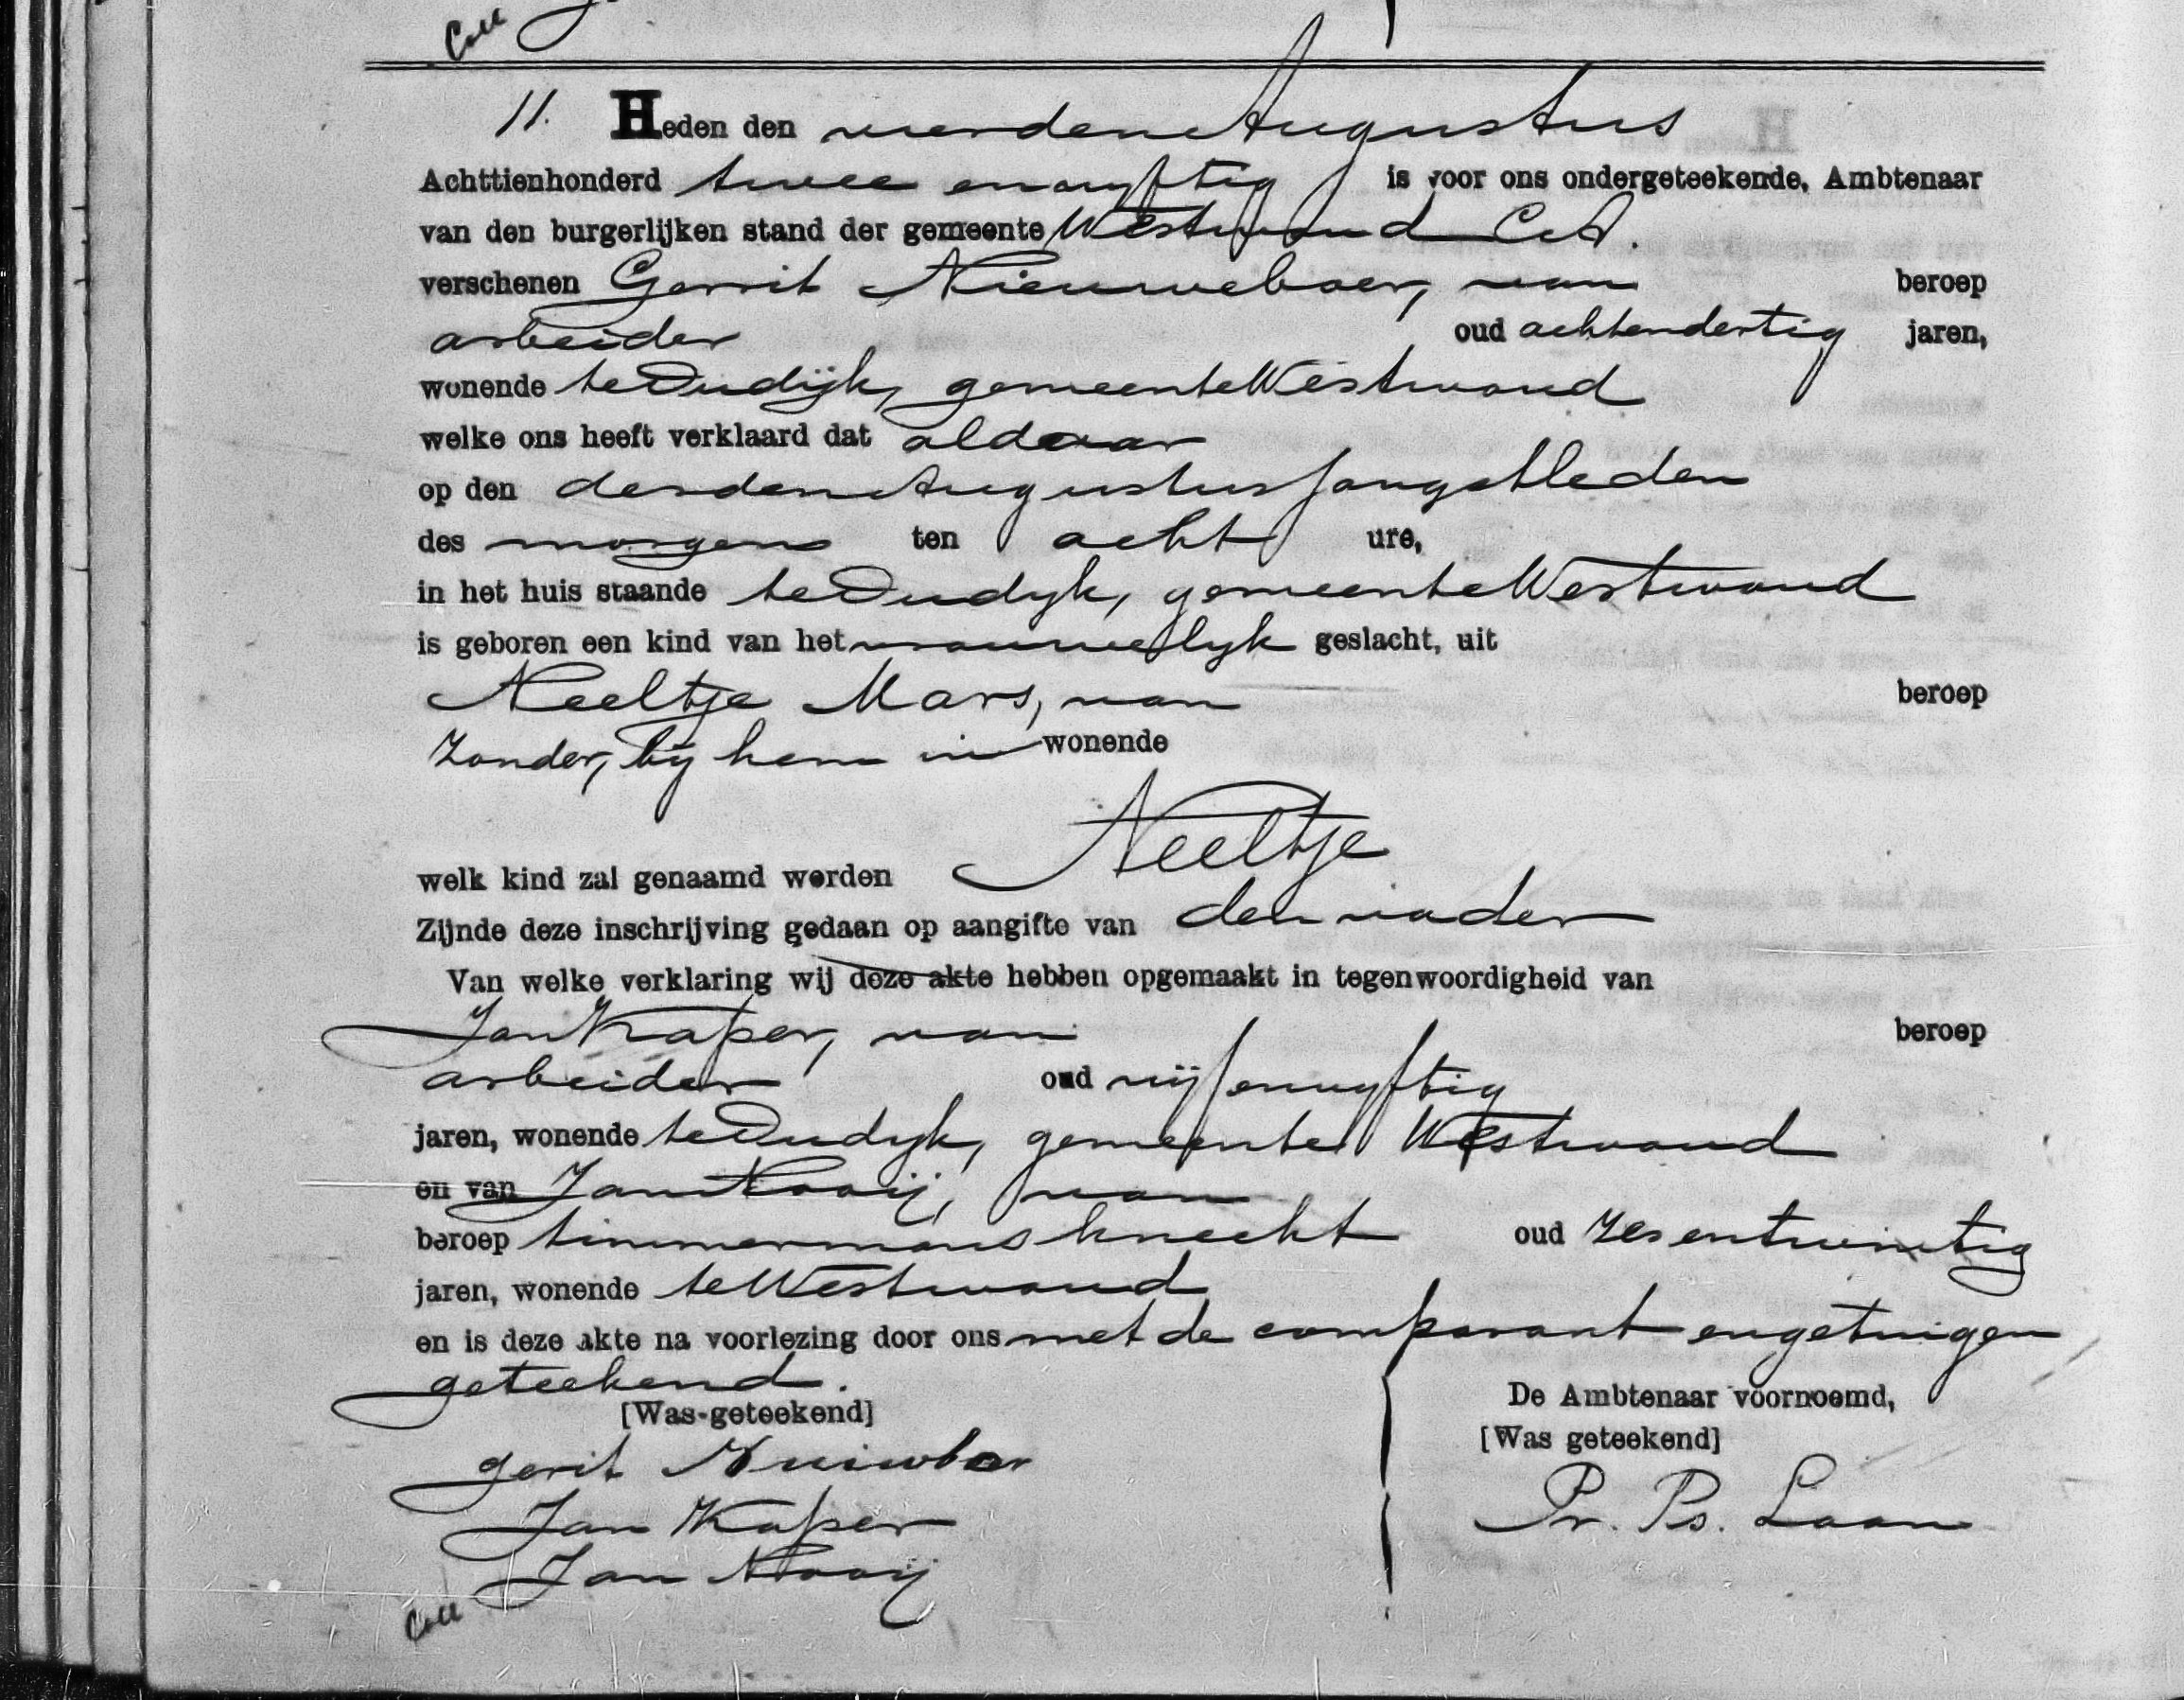 Coll
11. Heden den vierden Augustus
Achttienhonderd twee en vyftig is voor ons ondergeteekende, Ambtenaar
van den burgerlijken stand der gemeente Westwoud C.A.
verschenen Gerrit Nieuweboer, van beroep
arbeider oud achtendertig jaren,
wonende te Oudijk, gemeente Westwoud
welke ons heeft verklaard dat aldaar
op den derden Augustus jongstleden
des morgens ten acht ure,
in het huis staande te Oudyk, gemeente Westwoud
is geboren een kind van het vrouwelyk geslacht, uit
Neeltje Mars, van beroep
zonder, bij hem in wonende
Neeltje
welk kind zal genaamd worden
Zijnde deze inschrijving gedaan op aangifte van den vader
Van welke verklaring wij deze akte hebben opgemaakt in tegenwoordigheid van
Jan Kaper, van beroep
arbeider oud vijfenvyftig
jaren, wonende te Oudyk, gemeente Westwoud
en van Jan Nooij, van
beroep timmermans knecht oud zesentwintig
jaren, wonende te Westwoud
en is deze akte na voorlezing door ons met de comparant en getuigen
geteekend.
[Was geteekend]
De Ambtenaar voornoemd,
[Was geteekend]
gerit
Jan Kaper
Jan Nooij
Pr. Ps. Laan
Coll